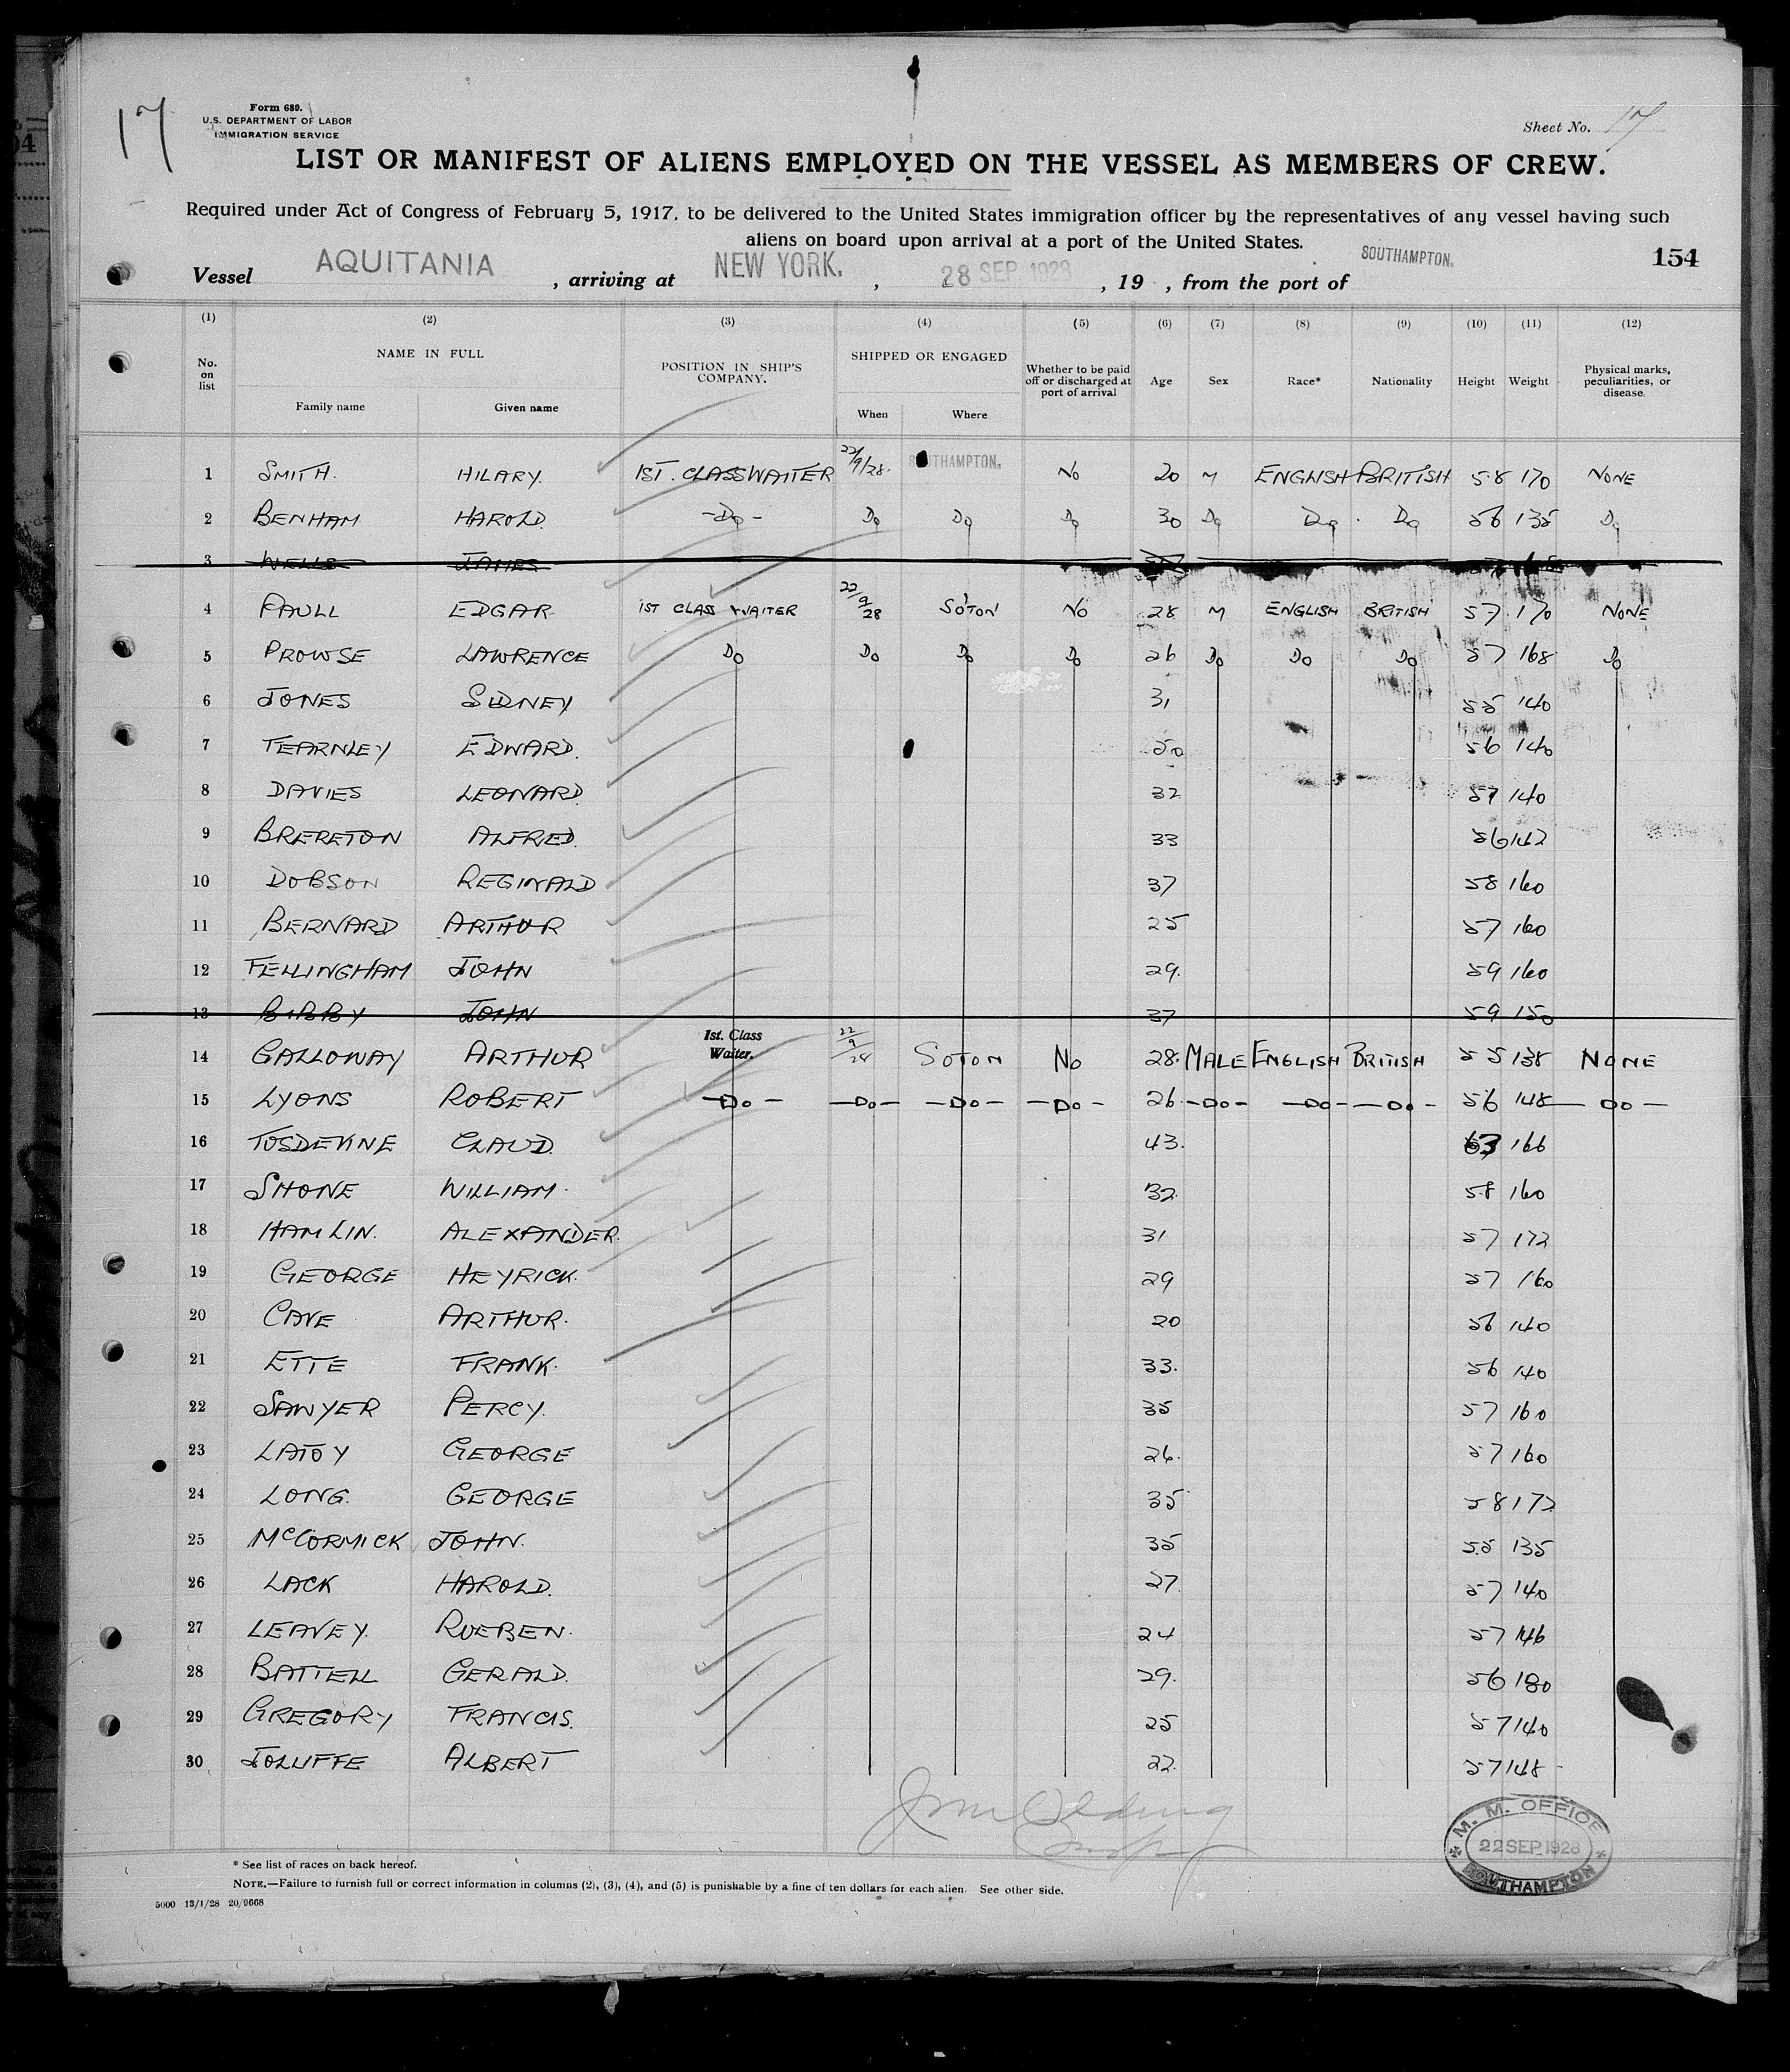 17
Form 680.
U.S. DEPARTMENT OF LABOR
IMMIGRATION SERVICE
Sheet No. 17
LIST OR MANIFEST OF ALIENS EMPLOYED ON THE VESSEL AS MEMBERS OF CREW.
Required under Act of Congress of February 5, 1917, to be delivered to the United States immigration officer by the representatives of any vessel having such
aliens on board upon arrival at a port of the United States.
154
Vessel AQUITANIA , arriving at NEW YORK. , 28 SEP 1928 , 19 , from the port of SOUTHAMPTON.
(1) (2) (3) (4) (5) (6) (7) (8) (9) (10) (11) (12)
No. on list NAME IN FULL POSITION IN SHIP'S COMPANY. SHIPPED OR ENGAGED Whether to be paid off or discharged at port of arrival Age Sex Race* Nationality Height Weight Physical marks, peculiarities, or disease.
Family name Given name When Where
1 SMITH. HILARY. 1ST. CLASS WAITER 22/9/28. SOUTHAMPTON. No 20 M ENGLISH BRITISH 58 170 NONE
2 BENHAM HAROLD. -Do- Do Do Do 30 Do Do Do 56 135 Do
3 WELLS JAMES
4 PAULL EDGAR 1ST CLASS WAITER 22/9/28 SOTON No 28 M ENGLISH BRITISH 57 170 NONE
5 PROWSE LAWRENCE Do Do Do Do 26 Do Do Do 57 168 Do
6 JONES SIDNEY 31 55 140
7 TEARNLEY EDWARD. 50 56 140
8 DAVIES LEONARD. 32 57 140
9 BRERETON ALFRED. 33 56 142
10 DOBSON REGINALD 37 58 160
11 BERNARD ARTHUR 25 57 160
12 FELLINGHAM JOHN 29. 59 160
13 BIBBY JOHN 37 59 150
14 GALLOWAY ARTHUR 1st. Class Waiter. 22/9/28 SOTON No 28. MALE ENGLISH BRITISH 55 138 NONE
15 LYONS ROBERT -Do- -Do- -Do- -Do- 26. -Do- -Do- -Do- 56 148 -Do-
16 TOSDEVINE CLAUD. 43. 63 166
17 SHONE WILLIAM. 32. 58 160
18 HAMLIN. ALEXANDER. 31 57 172
19 GEORGE HEYRICK. 29 57 160
20 CAVE ARTHUR. 20 56 140
21 ETTE FRANK. 33. 56 140
22 SAWYER PERCY. 35 57 160
23 LATOY GEORGE 26. 57 160
24 LONG. GEORGE 35 58 172
25 McCORMICK JOHN. 35 55 135
26 LACK HAROLD. 27. 57 140
27 LEAVEY. RUEBEN. 24 57 146
28 BATTELL GERALD. 29. 56 180
29 GREGORY FRANCIS. 25 57 140
30 JOLLIFFE ALBERT 22. 57 148
M. M. OFFICE
22 SEP 1928
SOUTHAMPTON
* See list of races on back hereof.
NOTE.—Failure to furnish full or correct information in columns (2), (3), (4), and (5) is punishable by a fine of ten dollars for each alien. See other side.
5000 13/1/28 20/9668